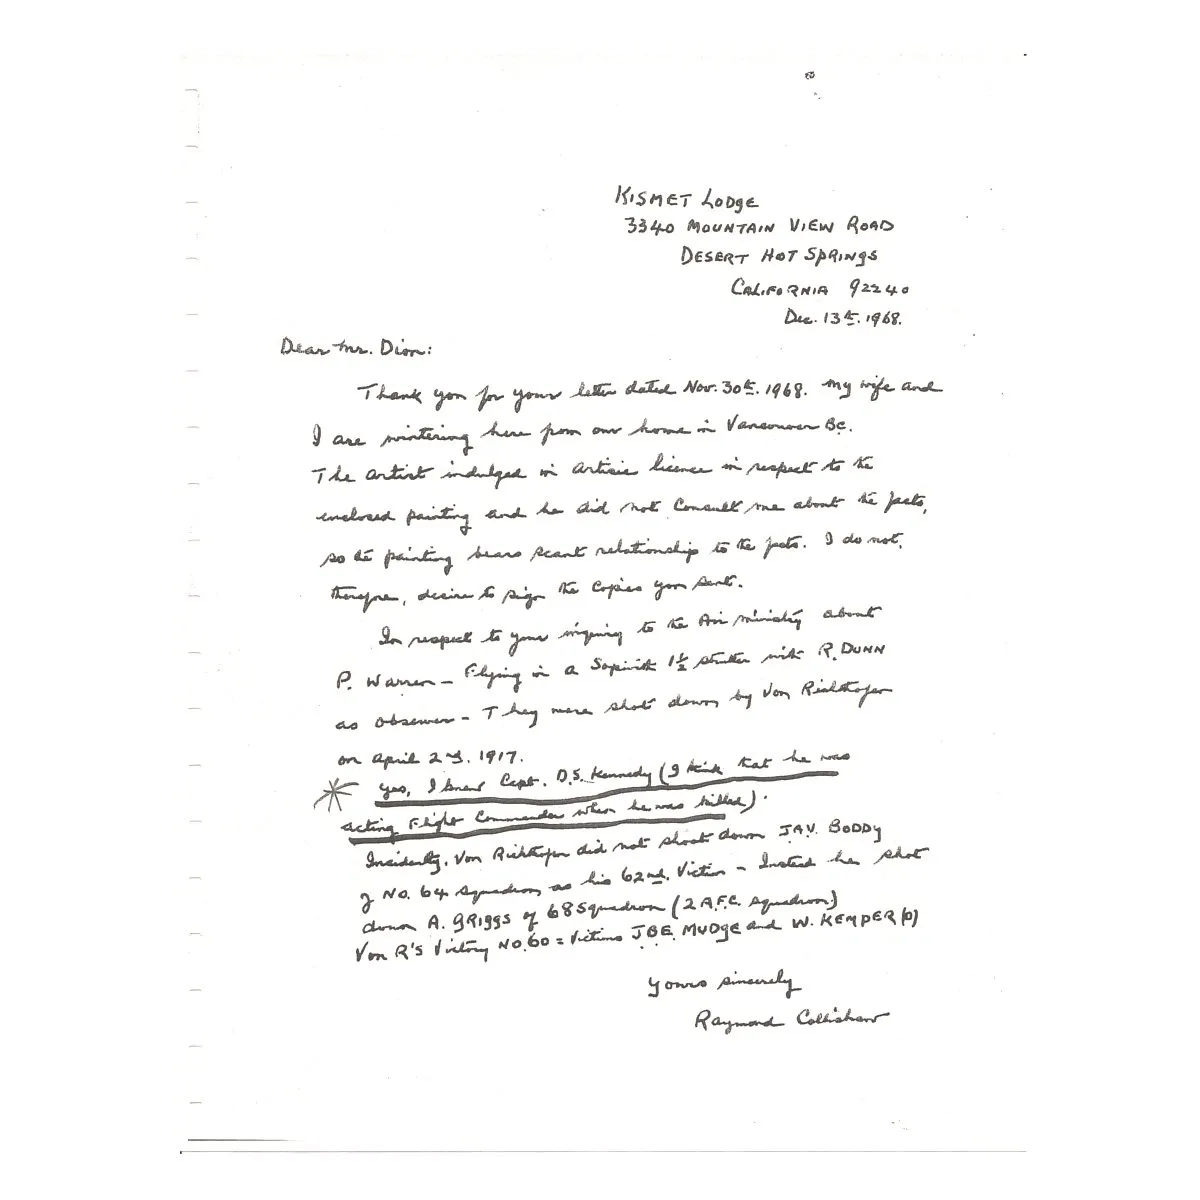 KISMET LODGE
3340 MOUNTAIN VIEW ROAD
DESERT HOT SPRINGS
CALIFORNIA 92240
Dec. 13th. 1968.
Dear Mr. Dion:
Thank you for your letter dated Nov. 30th. 1968. My wife and
I are wintering here from our home in Vancouver BC.
The artist indulged in artisic licence in respect to the
enclosed painting and he did not consult me about the facts,
so the painting bears scant relationship to the facts. I do not,
therefore, desire to sign the copies you sent.
In respect to your inquiry to the Air Ministry about
P. Warren – Flying in a Sopwith 1½ Strutter with R. DUNN
as observer – They were shot down by Von Richthofen
on April 2nd. 1917.
Yes, I knew Capt. D.S. Kennedy (I think that he was
acting Flight Commander when he was killed).
Incidently, Von Richthofen did not shoot down J.A.V. BODDY
of NO. 64 Squadron as his 62nd. Victim – Instead he shot
down A. GRIGGS of 68 Squadron (2 A.F.C. Squadron)
Von R's Victory NO. 60 = Victims J.B.E. MUDGE and W. KEMPER (O)
Yours sincerely
Raymond Collishaw